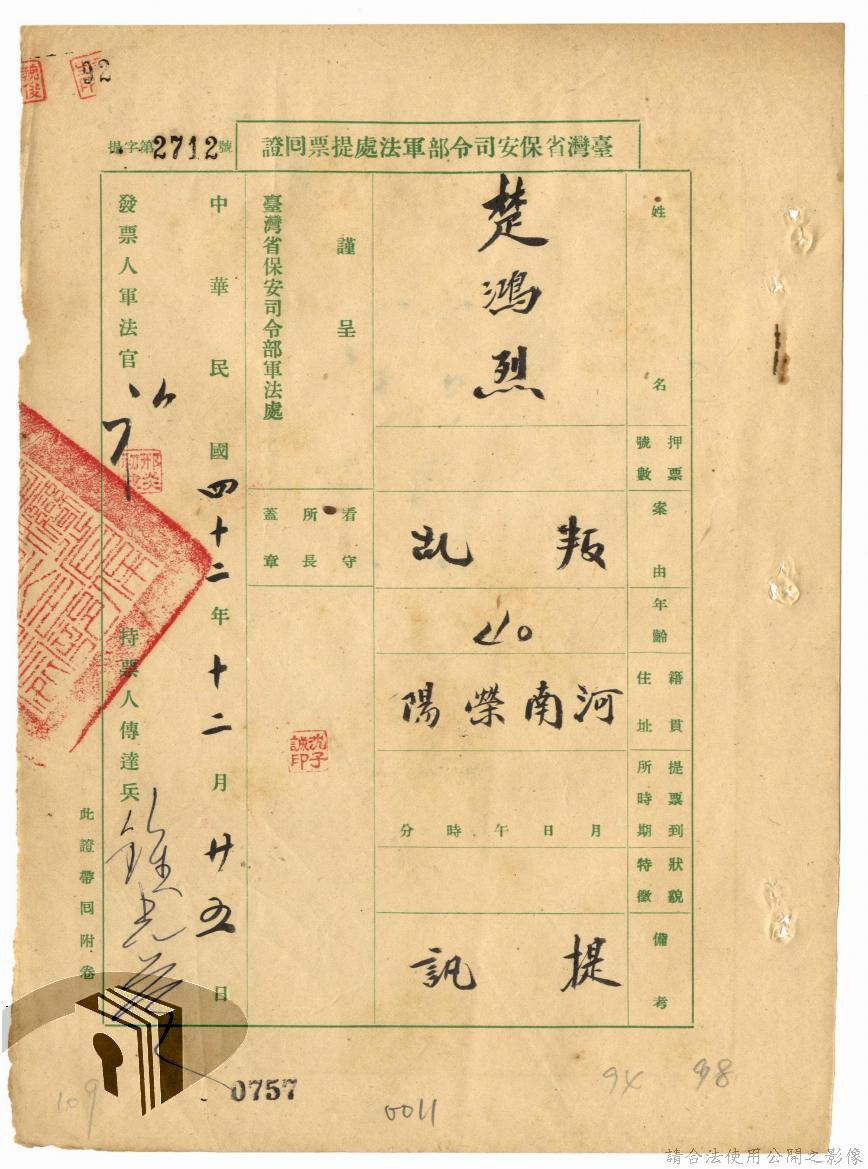 92
臺灣省保安司令部軍法處提票回證
提字第2712號
姓名
楚鴻烈
押票號數
案由
叛乱
年齡
40
籍貫住址
河南榮陽
提票到所時期
月日午時分
狀貌特徵
備考
提訊
謹呈
臺灣省保安司令部軍法處
看守所長蓋章
沈子誠印
中華民國四十二年十二月廿五日
發票人軍法官
邢炎
持票人傳達兵
此證帶回附卷
0757
0011
109
94
98
請合法使用公開之影像